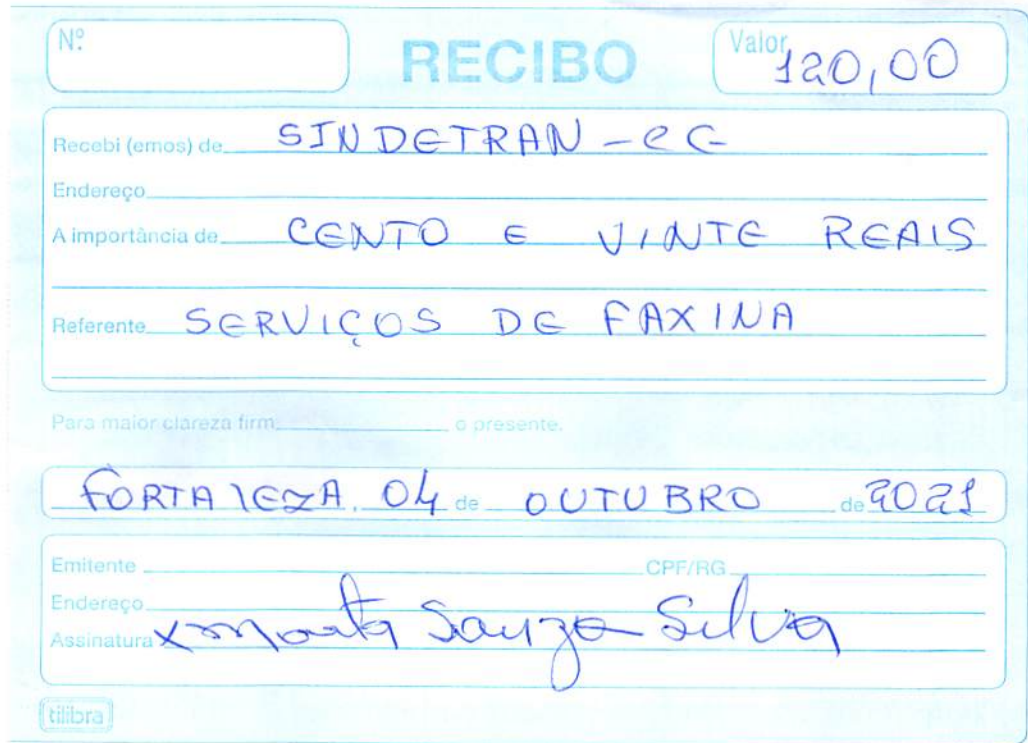 Nº
RECIBO
Valor 120,00
Recebi (emos) de SINDETRAN - CE
Endereço
A importância de CENTO E VINTE REAIS
Referente SERVIÇOS DE FAXINA
Para maior clareza firm o presente.
FORTALEZA, 04 de OUTUBRO de 2021
Emitente CPF/RG
Endereço
Assinatura x Marta Souza Silva
tilibra